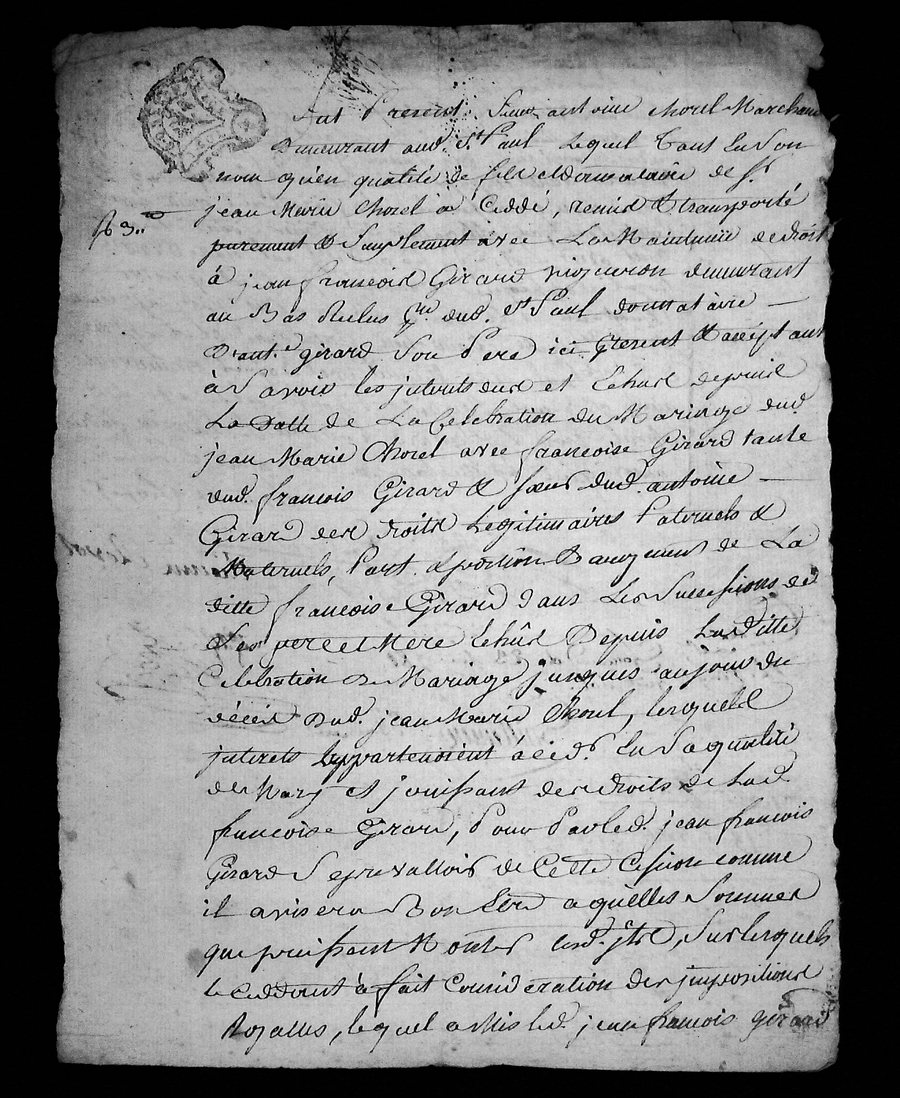 fut Present Sieur antoine chorel Marchand
Demeurant aud. St. Paul Lequel Tant En Son
nom qu'en qualité de fils et donnataire de Sr.
jean Marie Chorel a Ceddé, remis & transporté
purement & Simplement avec La Maintenüe de droit
à jean françois Girard vigneron demeurant
au Bas Reclus dud. St. Paul donnataire
D'ant. girard Son Pere ici present & aceptant
à Savoir les jnterets dus et Echus depuis
La Datte de La Celebration du Mariage dud.
jean Marie Chorel avec francoise Girard tante
dud. françois Girard & sœur dud. antoine
Girard des droits Legitimaires Paternels &
Maternels, Part & portion D'augment de La
ditte francoise Girard dans Les Successions de
Ses pere et Mere Echûs Depuis Laditte
Celebration de Mariage jusques au jour du
décés Dud. jean Marie Chorel, lesquels
jnterets Appartenoient En Sa qualité
de Mary et jouissant des droits de Lad.
francoise Girard, Pour Par led. jean françois
Girard Se prevalloir de Cette Cession comme
il avisera Bon Etre a quelles Sommes
que puissent Monter lesd. jts., Sur lesquels
le Ceddant à fait Considération des jmpositions
Royalles, lequel a Mis led. jean francois girard